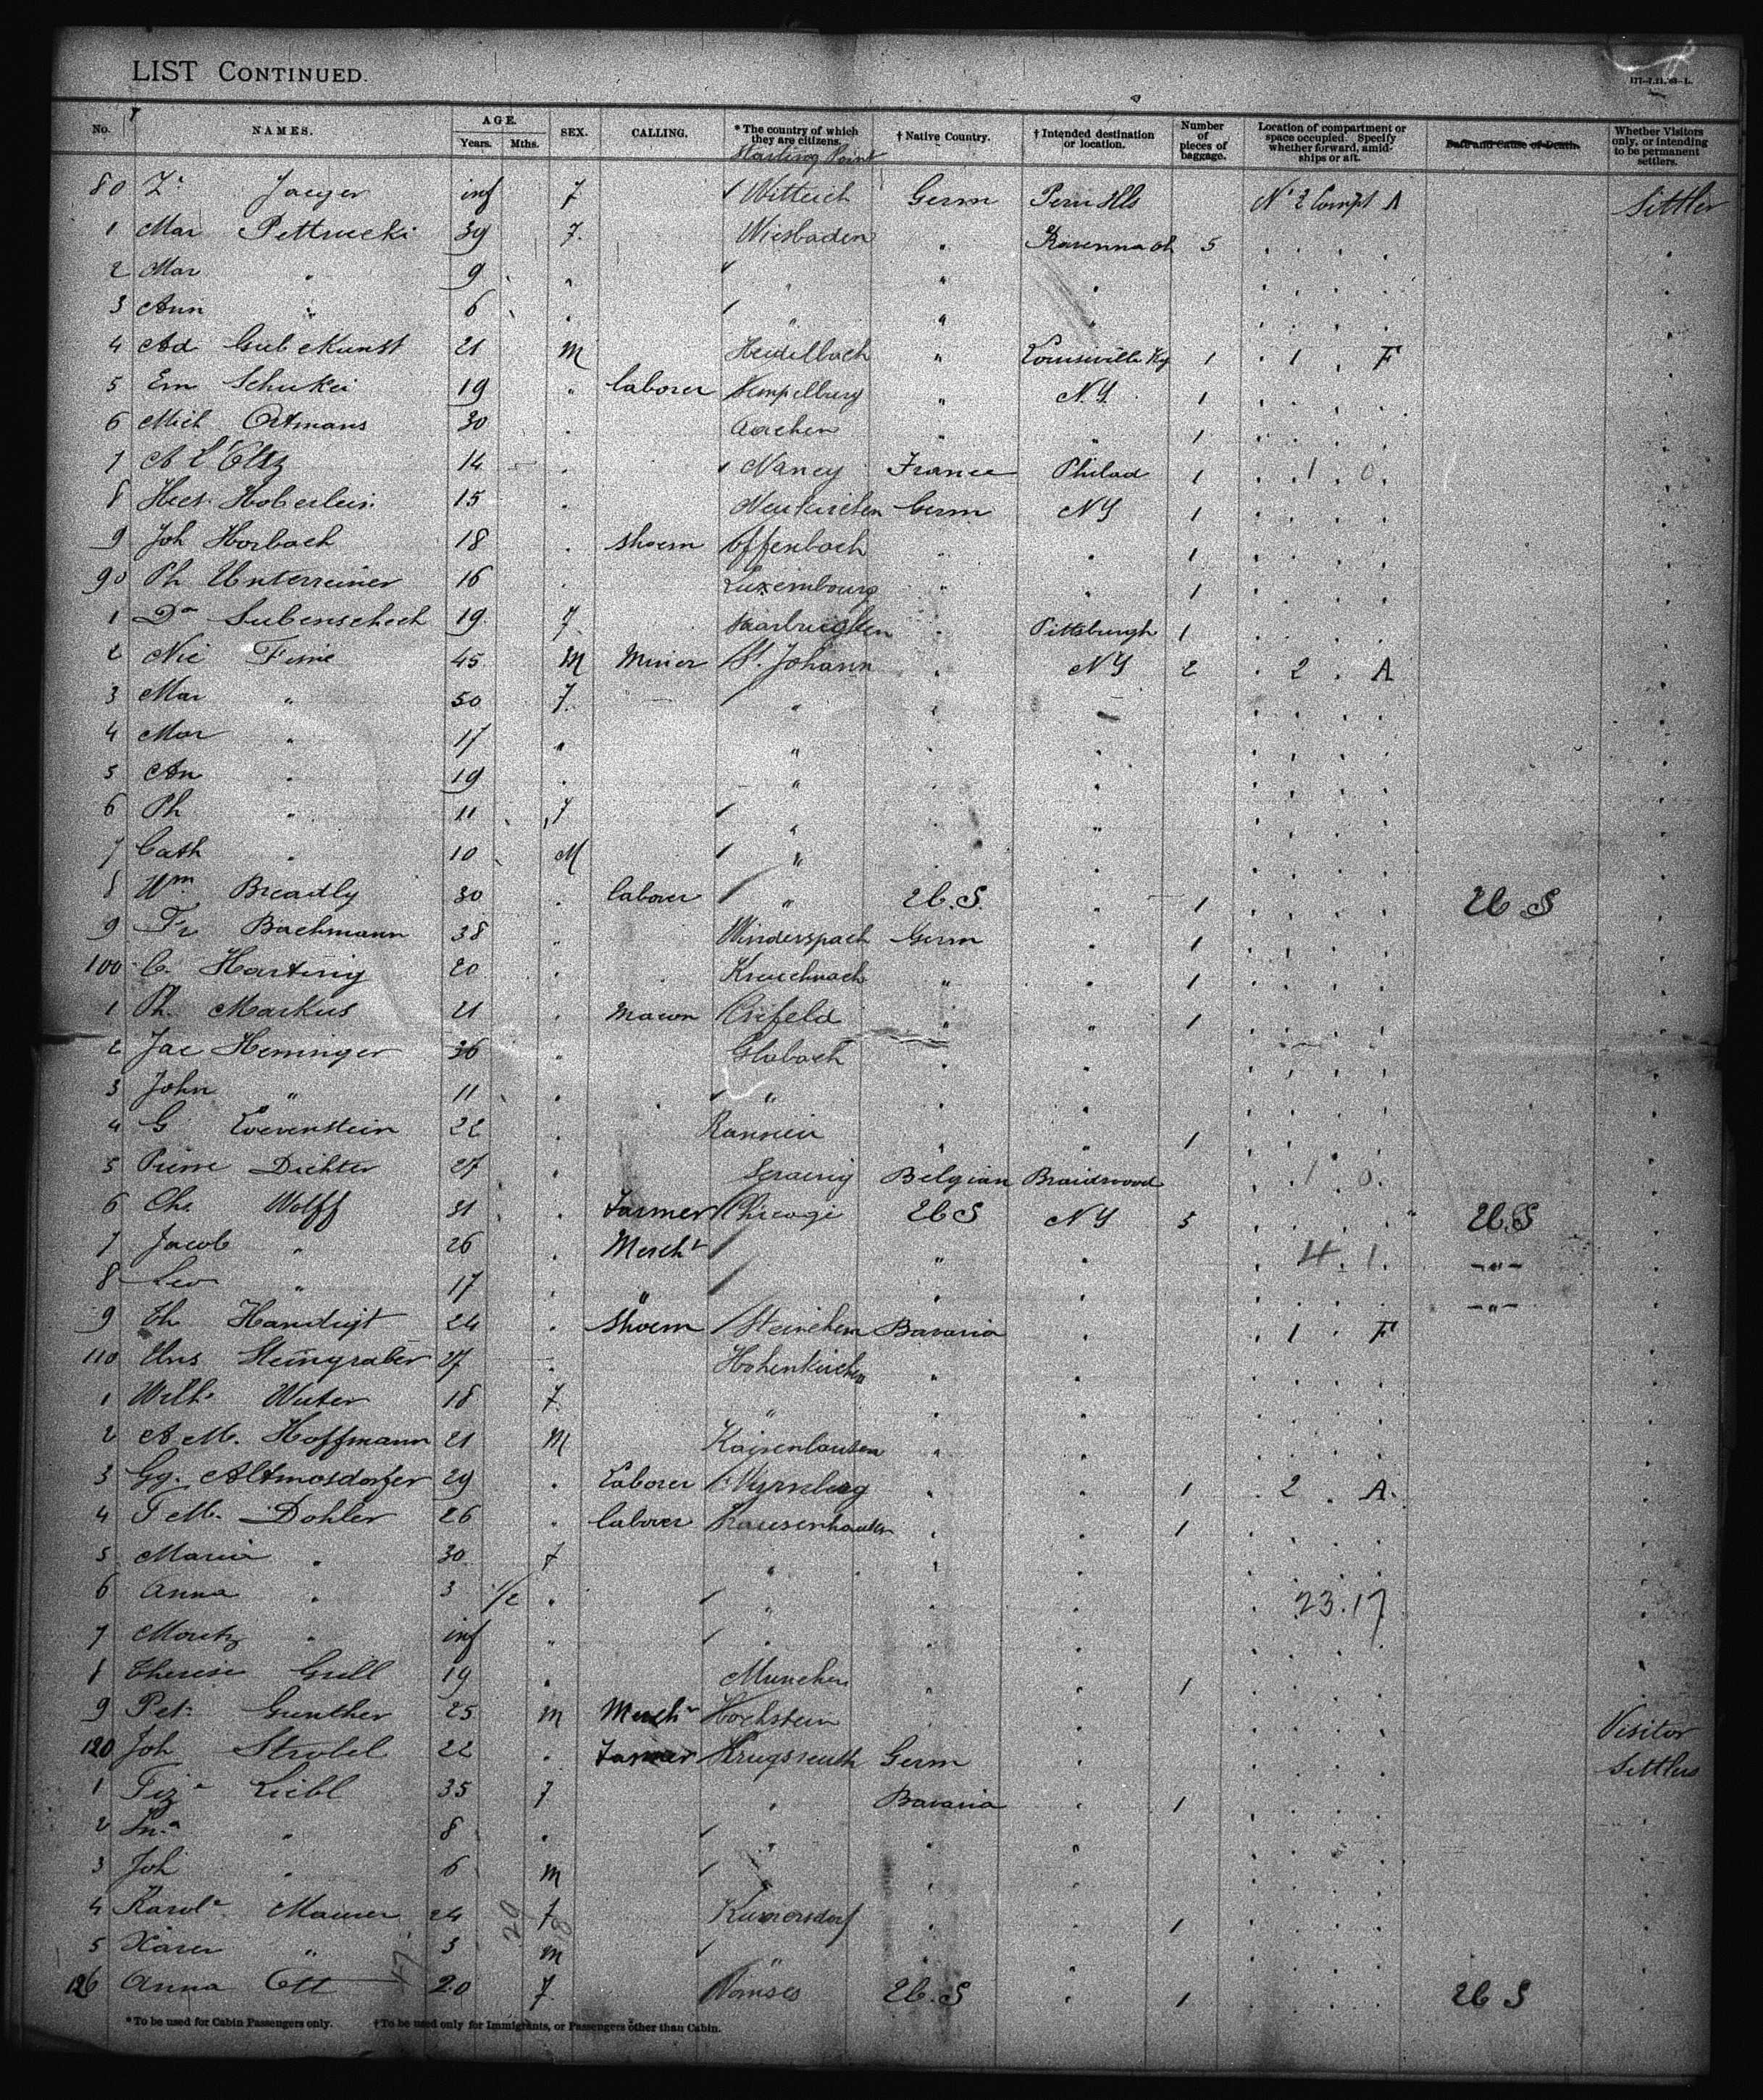 LIST CONTINUED.
177-7.11.'93-L.
No. NAMES. AGE. Years. Mths. SEX. CALLING. * The country of which they are citizens. † Native Country. † Intended destination or location. Number of pieces of baggage. Location of compartment or space occupied. Specify whether forward, amidships or aft. Date and Cause of Death. Whether Visitors only, or intending to be permanent settlers.
Starting Point
80 Jaeger inf f Wittlich Germ Peru Ills No 2 Compt A Settler
1 Mar Pettrucki 39 f. Wiesbaden " Ravenna Oh 5
2 Mar " 9 " "
3 Ann " 6 " "
4 Ad Gutekunst 21 M Heidelbach " Louisville Ky 1 1 F
5 Em Schukei 19 " laborer " N.Y. 1
6 Mich Ortmans 30 Aachen " " 1
7 14 Nancy France Philad 1 1 0
8 Hoberlein 15 Neukirchen Germ NY 1
9 Joh Horbach 18 shoem Offenbach " 1
90 Ph Unterreiner 16 Luxembourg " 1
1 Da Subenschech 19 f. Saarbrucken " Pittsburgh 1
2 Nic 45 M Miner St. Johann " NY 2 2 A
3 Mar " 50 f. "
4 Mar " 17 " "
5 An " 19 "
6 Ph " 11 f " "
7 Cath " 10 M "
8 Wm Breadly 30 laborer " U.S. 1 U S
9 Fr Bachmann 38 Winderspach Germ 1
100 C. Harting 20 Kreuchnach " 1
1 Ph. Markus 21 mason Crefeld " " 1
2 Jac Heminger 36 " Glabach
3 John " 11 "
4 G Loevenstein 22 " 1
5 Pierre Dichter 27 Seraing Belgian Braidwood 1 0
6 Cha Wolff 31 Farmer Chicago U S NY 5 U.S
7 Jacob " 26 Mercht " 4 1 -"-
8 Leo " 17 " " -"-
9 Th Handigt 24 shoem Steinchen Bavaria 1 F
110 Steingraber 27 Hohenkirchen "
1 Wilh. Wuter 18 f. "
2 A M. Hoffmann 21 M Kaiserslautern "
3 Gg. Altmosdorfer 29 Laborer Nürnberg 1 2 A.
4 F M. Dohler 26 laborer 1
5 Maria " 30 f "
6 Anna " 3 1/2 " 23.17
7 Moritz " inf " "
8 Therese Grell 19 Munchen 1
9 Pet. Gunther 25 m Mercht Hochstein Visitor
120 Joh Strobel 22 Farmer Krugsreuth Germ Settlers
1 Liebl 35 f " Bavaria 1
2 " 8 "
3 Joh " 6 m
4 Karola Maurer 24 f Kumersdorf 1
5 Xaver " 3 m "
126 Anna Ott 20 f. U.S 1 U S
* To be used for Cabin Passengers only. † To be used only for Immigrants, or Passengers other than Cabin.